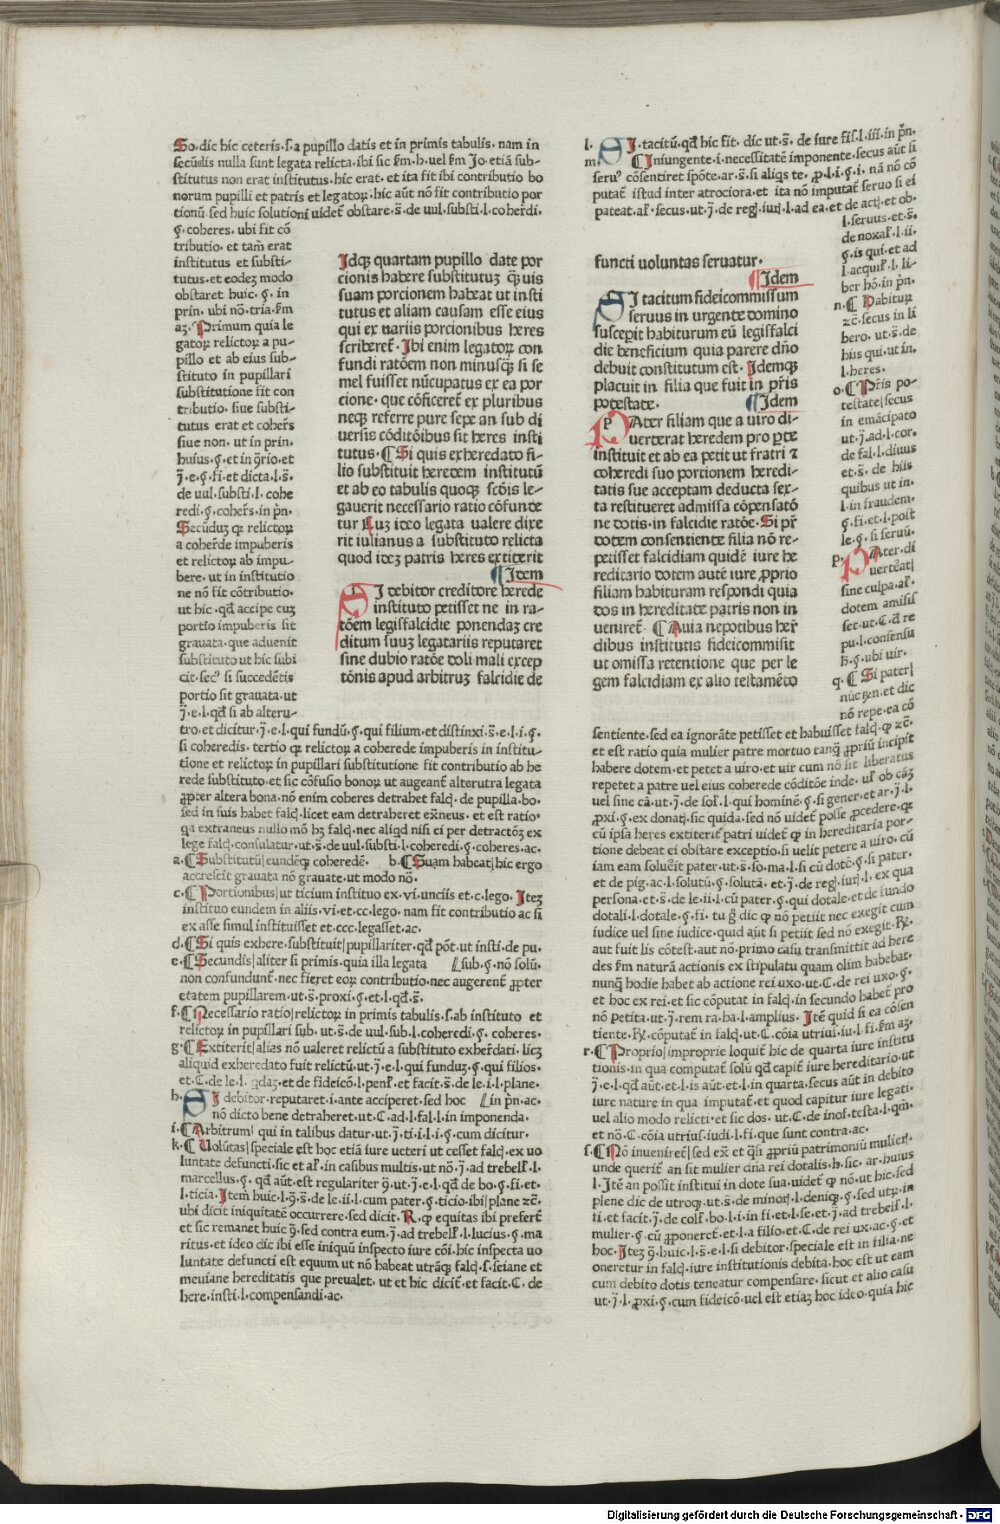 So. dic hic ceteris .s. a pupillo datis et in primis tabulis. nam in
secūdis nulla sunt legata relicta. ibi sic ẜm .b. uel ẜm Jo. etiā sub-
stitutus non erat institutus. hic erat. et ita fit ibi contributio bo
norum pupilli et patris et legatoꝝ. hic aūt nō fit contributio por
tionū. sed huic solutioni uidet̄ obstare .s̄. de uul. substi. l. coher̄di.
ꝯ. coheres. ubi fit cō
tributio. et tam̄ erat
institutus et substi-
tutus. et eodeꝫ modo
obstaret huic .ꝯ. in
prin. ubi nō. tria. ẜm
aꝫ. Primum quia le
gatoꝝ relictoꝝ a pu-
pillo et ab eius sub-
stituto in pupillari
substitutione fit con
tributio. siue substi-
tutus erat et coher̄s
siue non. ut in prin.
huius .ꝯ. et in
J̄. e. ꝯ. fi. et dicta. l. s̄.
de uul. substi. l. cohe
redi. ꝯ. coher̄s. in pn̄.
Secūduꝫ ꝙ relictoꝝ
a coher̄de impuberis
et relictoꝝ ab impu-
bere. ut in institutio
ne nō fit cōtributio.
ut hic. qđ accipe cuꝫ
portio impuberis sit
grauata. que aduenit
substituto ut hic subi
cit. secꝰ si succedētis
portio sit grauata. ut
J̄. e. l. qđ si ab alteru-
tro. et dicitur. J̄. e. l. qui fundū. ꝯ. qui filium. et distinxi .s̄. e. l. i. ꝯ.
si coheredis. tertio ꝙ relictoꝝ a coherede impuberis in institu-
tione et relictoꝝ in pupillari substitutione fit contributio ab he
rede substituto. et sic cōfusio bonoꝝ ut augeant̄ alterutra legata
ꝓpter altera bona. nō enim coheres detrahet falcꝫ. de pupilla. bo.
sed in suis habet falcꝫ. licet eam detraheret ex̄neus. et est ratio.
qa extraneus nullo mō hꝫ falcꝫ. nec aliqđ nisi ei per detractōeꝫ ex
lege falcꝫ. consulatur. ut .s̄. de uul. substi. l. coheredi. ꝯ. coheres. ac.
a. ¶ Substitutū| eundēqꝫ coheredē. b. ¶ Suam habeat| hic ergo
accrescit grauata nō grauate. ut modo nō.
c. ¶ Portionibus| ut ticium instituo ex .vi. unciis et .c. lego. Iteꝫ
instituo eundem in aliis .vi. et .cc. lego. nam fit contributio ac si
ex asse simul instituisset et .ccc. legasset. ac.
d. ¶ Si quis exhere. substituit| pupillariter. qđ pōt. ut insti. de pu.
e. ¶ Secundis| aliter si primis. quia illa legata ⌊sub. ꝯ. nō solū.
non confundunt̄. nec fieret eoꝝ contributio. nec augerent̄ ꝓpter
etatem pupillarem. ut .s̄. proxi. ꝯ. et. l. qđ .s̄.
f. ¶ Necessario ratio| relictoꝝ in primis tabulis .s. ab instituto et
relictoꝝ in pupillari sub. ut .s̄. de uul. sub. l. coheredi. ꝯ. coheres.
g. ¶ Extiterit| alias nō ualeret relictū a substituto exher̄dati. licꝫ
aliquid exheredato fuit relictū. ut. J̄. e. l. qui funduꝫ. ꝯ. qui filios.
et. C. de le. l. qdaꝫ. et de fideicō. l. penl̄. et facit .s̄. de le. i. l. plane.
h. SI debitor. reputaret .i. ante acciperet. sed hoc ⌊in pn̄. ac.
nō dicto bene detraheret. ut. C. ad. l. fal. l. in imponenda.
i. ¶ Arbitrum| qui in talibus datur. ut. J̄. ti. i. l. i. ꝯ. cum dicitur.
k. ¶ Uolūtas| speciale est hoc etiā iure ueteri ut cesset falcꝫ. ex uo
luntate defuncti. sic et al̄. in casibus multis. ut nō. J̄. ad trebell̄. l.
marcellus. ꝯ. qđ aūt. est regulariter ut. J̄. e. l. qđ de bo. ꝯ. fi. et.
l. ticia. Item huic. l. .s̄. de le. ii. l. cum pater. ꝯ. ticio. ibi| plane ꝛc̄.
ubi dicit iniquitatē occurrere. sed dicit. R. ꝙ equitas ibi prefert̄
et sic remanet huic sed contra eum. J̄. ad trebell̄. l. lucius. ꝯ. ma
ritus. et ideo dic ibi esse iniquū inspecto iure cōi. hic inspecta uo
luntate defuncti est equum ut nō habeat utrāqꝫ falcꝫ. s. seiane et
meuiane hereditatis que preualet. ut et hic dicit̄. et facit. C. de
here. insti. l. compensandi. ac.
Idqꝫ quartam pupillo date por
cionis habere substitutuꝫ q̄uis
suam porcionem habeat ut insti
tutus et aliam causam esse eius
qui ex uariis porcionibus heres
scriberet̄. Ibi enim legatoꝝ con
fundi ratōem non minusqꝫ si se
mel fuisset nūcupatus ex ea por
cione. que cōficeret̄ ex pluribus
neqꝫ referre pure sepe an sub di
uersis cōditōibus sit heres insti
tutus. ¶ Si quis exheredato fi-
lio substituit heredem institutū
et ab eo tabulis quoqꝫ scdis le-
gauerit necessario ratio cōfunde
tur Luꝫ ideo legata ualere dixe
rit iulianus a substituto relicta
quod ideꝫ patris heres extiterit
¶ Idem
SI debitor creditore herede
instituto petisset ne in ra-
tōem legisfalcidie ponendaꝫ cre
ditum suuꝫ legatariis reputaret
sine dubio ratōe doli mali excep
tōnis apud arbitruꝫ falcidie de
l. SI. tacitū. qđ hic fit. dic ut .s̄. de iure fis. l. iii. in pn̄.
m. ¶ Iniungente .i. necessitatē imponente. secus aūt si
seruꝰ cōsentiret spōte. ar .s̄. si aliqs te. ꝓ. l. i. ꝯ. i. nā nō cō
putat̄ istud inter atrociora. et ita nō imputat̄ seruo si ei
pateat. al̄. secus. ut. J̄. de regꝫ. iurꝫ. l. ad ea. et de actꝫ. et ob.
l. seruus. et .s̄.
de noxal̄. l. ii.
ꝯ. is qui. et ad
l. acquir̄. l. li-
ber hō. in pn̄.
n. ¶ Habituꝝ
ꝛc̄. secus in li
bero. ut .s̄. de
hiis qui. ut in.
l. heres.
o. ¶ Pr̄is po-
testate| secus
in emācipato
ut. J̄. ad. l. cor.
de fal. l. diuus
et .s̄. de hiis
quibus ut in.
l. in fraudem.
ꝯ. fi. et. l. post
le. ꝯ. si seruū.
p. PAter. di
uerteat|
sine culpa. al̄.
dotem amisis
set. ut. C. đ re
pu. l. consensu
h. ꝯ. ubi uir.
q. ¶ Si pater|
nūcꝫ n. et dic
nō repe. ea cō
functi uoluntas seruatur.
¶ Idem
SI tacitum fideicommissum
seruus in urgente domino
suscepit habiturum eū legisfalci
die beneficium quia parere dn̄o
debuit constitutum est. Idemqꝫ
placuit in filia que fuit in pr̄is
potestate. ¶ Idem
PAter filiam que a uiro di-
uerterat heredem pro ꝑte
instituit et ab ea petit ut fratri ⁊
coheredi suo portionem heredi-
tatis sue acceptam deducta sex-
ta restitueret admissa cōpensatō
ne dotis. in falcidie ratōe. Si pr̄
dotem consentiente filia nō re-
petisset falcidiam quidē iure he
reditario dotem autē iure ꝓprio
filiam habituram respondi quia
dos in hereditate patris non in
ueniret̄. ¶ Auia nepotibus her̄
dibus institutis fideicommisit
ut omissa retentione que per le
gem falcidiam ex alio testamēto
sentiente. sed ea ignorāte petisset et habuisset falcꝫ. ꝙ ꝛc̄.
et est ratio quia mulier patre mortuo tanqꝫ ꝓpriū incipit
habere dotem. et petet a uiro. et uir cum nō sit liberatus
repetet a patre uel eius coherede cōditōe inde. ul̄ ob cāꝫ
uel sine cā. ut. J̄. de sol̄. l. qui hominē. ꝯ. si gener. et ar. J̄. l.
pxi. ꝯ. ex donatꝫ. sic quida. sed nō uidet̄ posse ꝓcedere. ꝙ
cū ipsa heres extiterit̄ patri uidet̄ ꝙ in hereditaria por-
tione debeat ei obstare exceptio. si uelit petere a uiro. cū
iam eam soluerit pater. ut .s̄. so. ma. l. si cū dotē. ꝯ. si pater.
et de pig. ac. l. solutū. ꝯ. solutā. et. J̄. de regꝫ. iurꝫ. l. ex qua
persona. et .s̄. de le. ii. l. cū pater. ꝯ. qui dotale. et de fundo
dotali. l. dotale. ꝯ. fi. tu dic ꝙ nō petiit nec exegit cum
iudice uel sine iudice. quid aūt si petiit sed nō exegit. R.
aut fuit lis cōtest. aut nō. primo casu transmittit ad here
des ẜm naturā actionis ex stipulatu quam olim habebat.
nunqꝫ hodie habet ab actione rei uxo. ut. C. de rei uxo. ꝯ.
et hoc ex rei. et sic cōputat in falcꝫ. in secundo habet̄ pro
nō petita. ut. J̄. rem ra. ha. l. amplius. Itē quid si ea cōsen
tiente. R. cōputat̄ in falcꝫ. ut. C. cōia utriui. iu. l. fi. ẜm aꝫ.
r. ¶ Proprio| improprie loquit̄ hic de quarta iure institu
tionis. in qua computat̄ solū qđ capit̄ iure hereditario. ut
J̄. e. l. qđ aūt. et. l. is aūt. et. l. in quarta. secus aūt in debito
iure nature in qua imputat̄. et quod capitur iure legati.
uel alio modo relicti. et sic dos. ut. C. de inof. testa. l. qm̄.
et nō. C. cōia utrius. iudi. l. fi. que sunt contra. ac.
s. ¶ Nō inueniret̄| sed ex̄. et q̄si ꝓpriū patrimoniū mulier̄.
unde querit̄ an sit mulier dn̄a rei dotalis. h. sic. ar. huius
l. Itē an possit institui in dote sua. uidet̄ ꝙ nō. ut hic. sed
plene dic de utroqꝫ. ut .s̄. de minorꝫ. l. deniqꝫ. ꝯ. sed utꝝ. in
ti. et facit. J̄. de col̄. bo. l. i. in fi. et. l. se. et. J̄. ad trebell̄. l.
mulier. ꝯ. cū ꝓponeret̄. et. l. a filio. et. C. de rei ux. ac. ꝯ. et
hoc. Iteꝫ huic. l. .s̄. e. l. si debitor. speciale est in filia. ne
oneretur in falcꝫ. iure institutionis debita. hoc est ut eam
cum debito dotis teneatur compensare. sicut et alio casu
ut. J̄. l. ꝓxi. ꝯ. cum fideicō. uel est etiaꝫ hoc ideo. quia hic
Digitalisierung gefördert durch die Deutsche Forschungsgemeinschaft - DFG